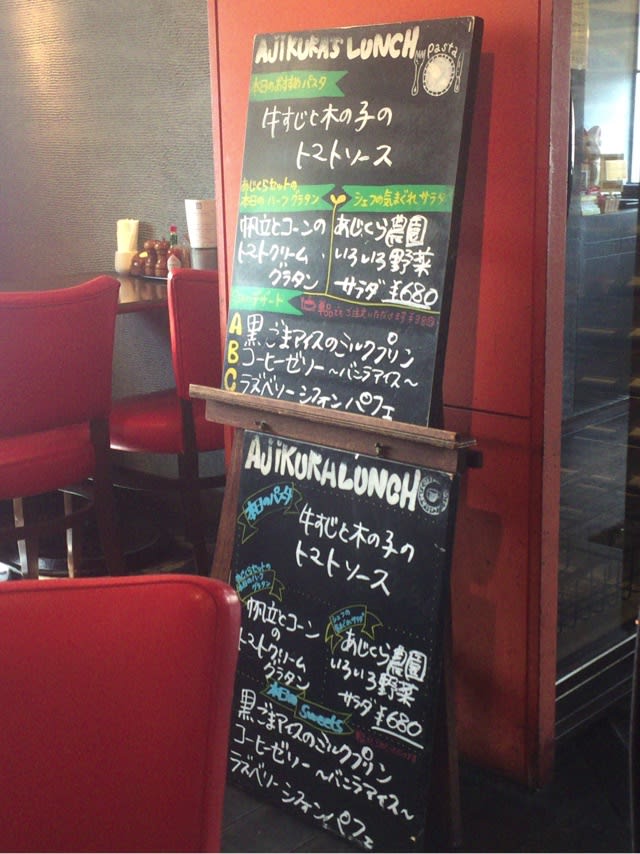 AJIKURA'S LUNCH
pasta
本日のおすすめパスタ
牛すじと木の子の
トマトソース
あじくらセットの
本日のハーフグラタン
帆立とコーンの
トマトクリーム
グラタン
シェフの気まぐれサラダ
あじくら農園
いろいろ野菜
サラダ ¥680
デザート
A 黒ごまアイスのミルクプリン
B コーヒーゼリー ～バニラアイス～
C ラズベリーシフォンパフェ
AJIKURA LUNCH
本日のパスタ
牛すじと木の子の
トマトソース
あじくらセットの
本日のハーフ
グラタン
帆立とコーン
の
トマトクリーム
グラタン
シェフの
気まぐれサラダ
あじくら農園
いろいろ野菜
サラダ ¥680
本日の Sweets
黒ごまアイスのミルクプリン
コーヒーゼリー ～バニラアイス～
ラズベリーシフォンパフェ